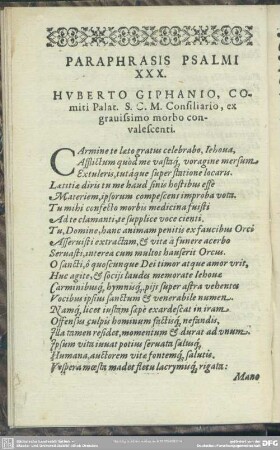 PARAPHRASIS PSALMI
XXX.
HVBERTO GIPHANIO, CO-
miti Palat. S. C. M. Consiliario, ex
grauissimo morbo con-
valescenti.
CArmine te læto gratus celebrabo, Iehoua,
Afflictum quòd me vastaq́; voragine mersum
Extuleris, tutáque super statione locaris.
Lætitiæ diris tu me haud sinis hostibus esse
Materiem, ipsorum compescens improba vota.
Tu mihi confecto morbis medicina fuisti
Ad te clamanti, te supplice voce cienti.
Tu, Domine, hanc animam penitis ex faucibus Orci
Asseruisti extractam, & vitæ à funere acerbo
Seruasti, interea cum multos hauserit Orcus.
O sancti, ô quoscunque Dei timor atque amor vrit,
Huc agite, & socij laudes memorate Iehouæ
Carminibusq́;, hymnisq́;, piji super astra vehentes
Vocibus ipsius sanctum & venerabile numen.
Namq́;, licet iustam sæpè exardescat in iram
Offensus culpis hominum factisq́; nefandis,
Illa tamen residet, momentum & durat ad vnum
Ipsum vita iuuat potius seruata salusq́;
Humana, auctorem vitæ fontemq́; salutis.
Vespera mœsta madet fletu lacrymisq́; rigata:
Mane